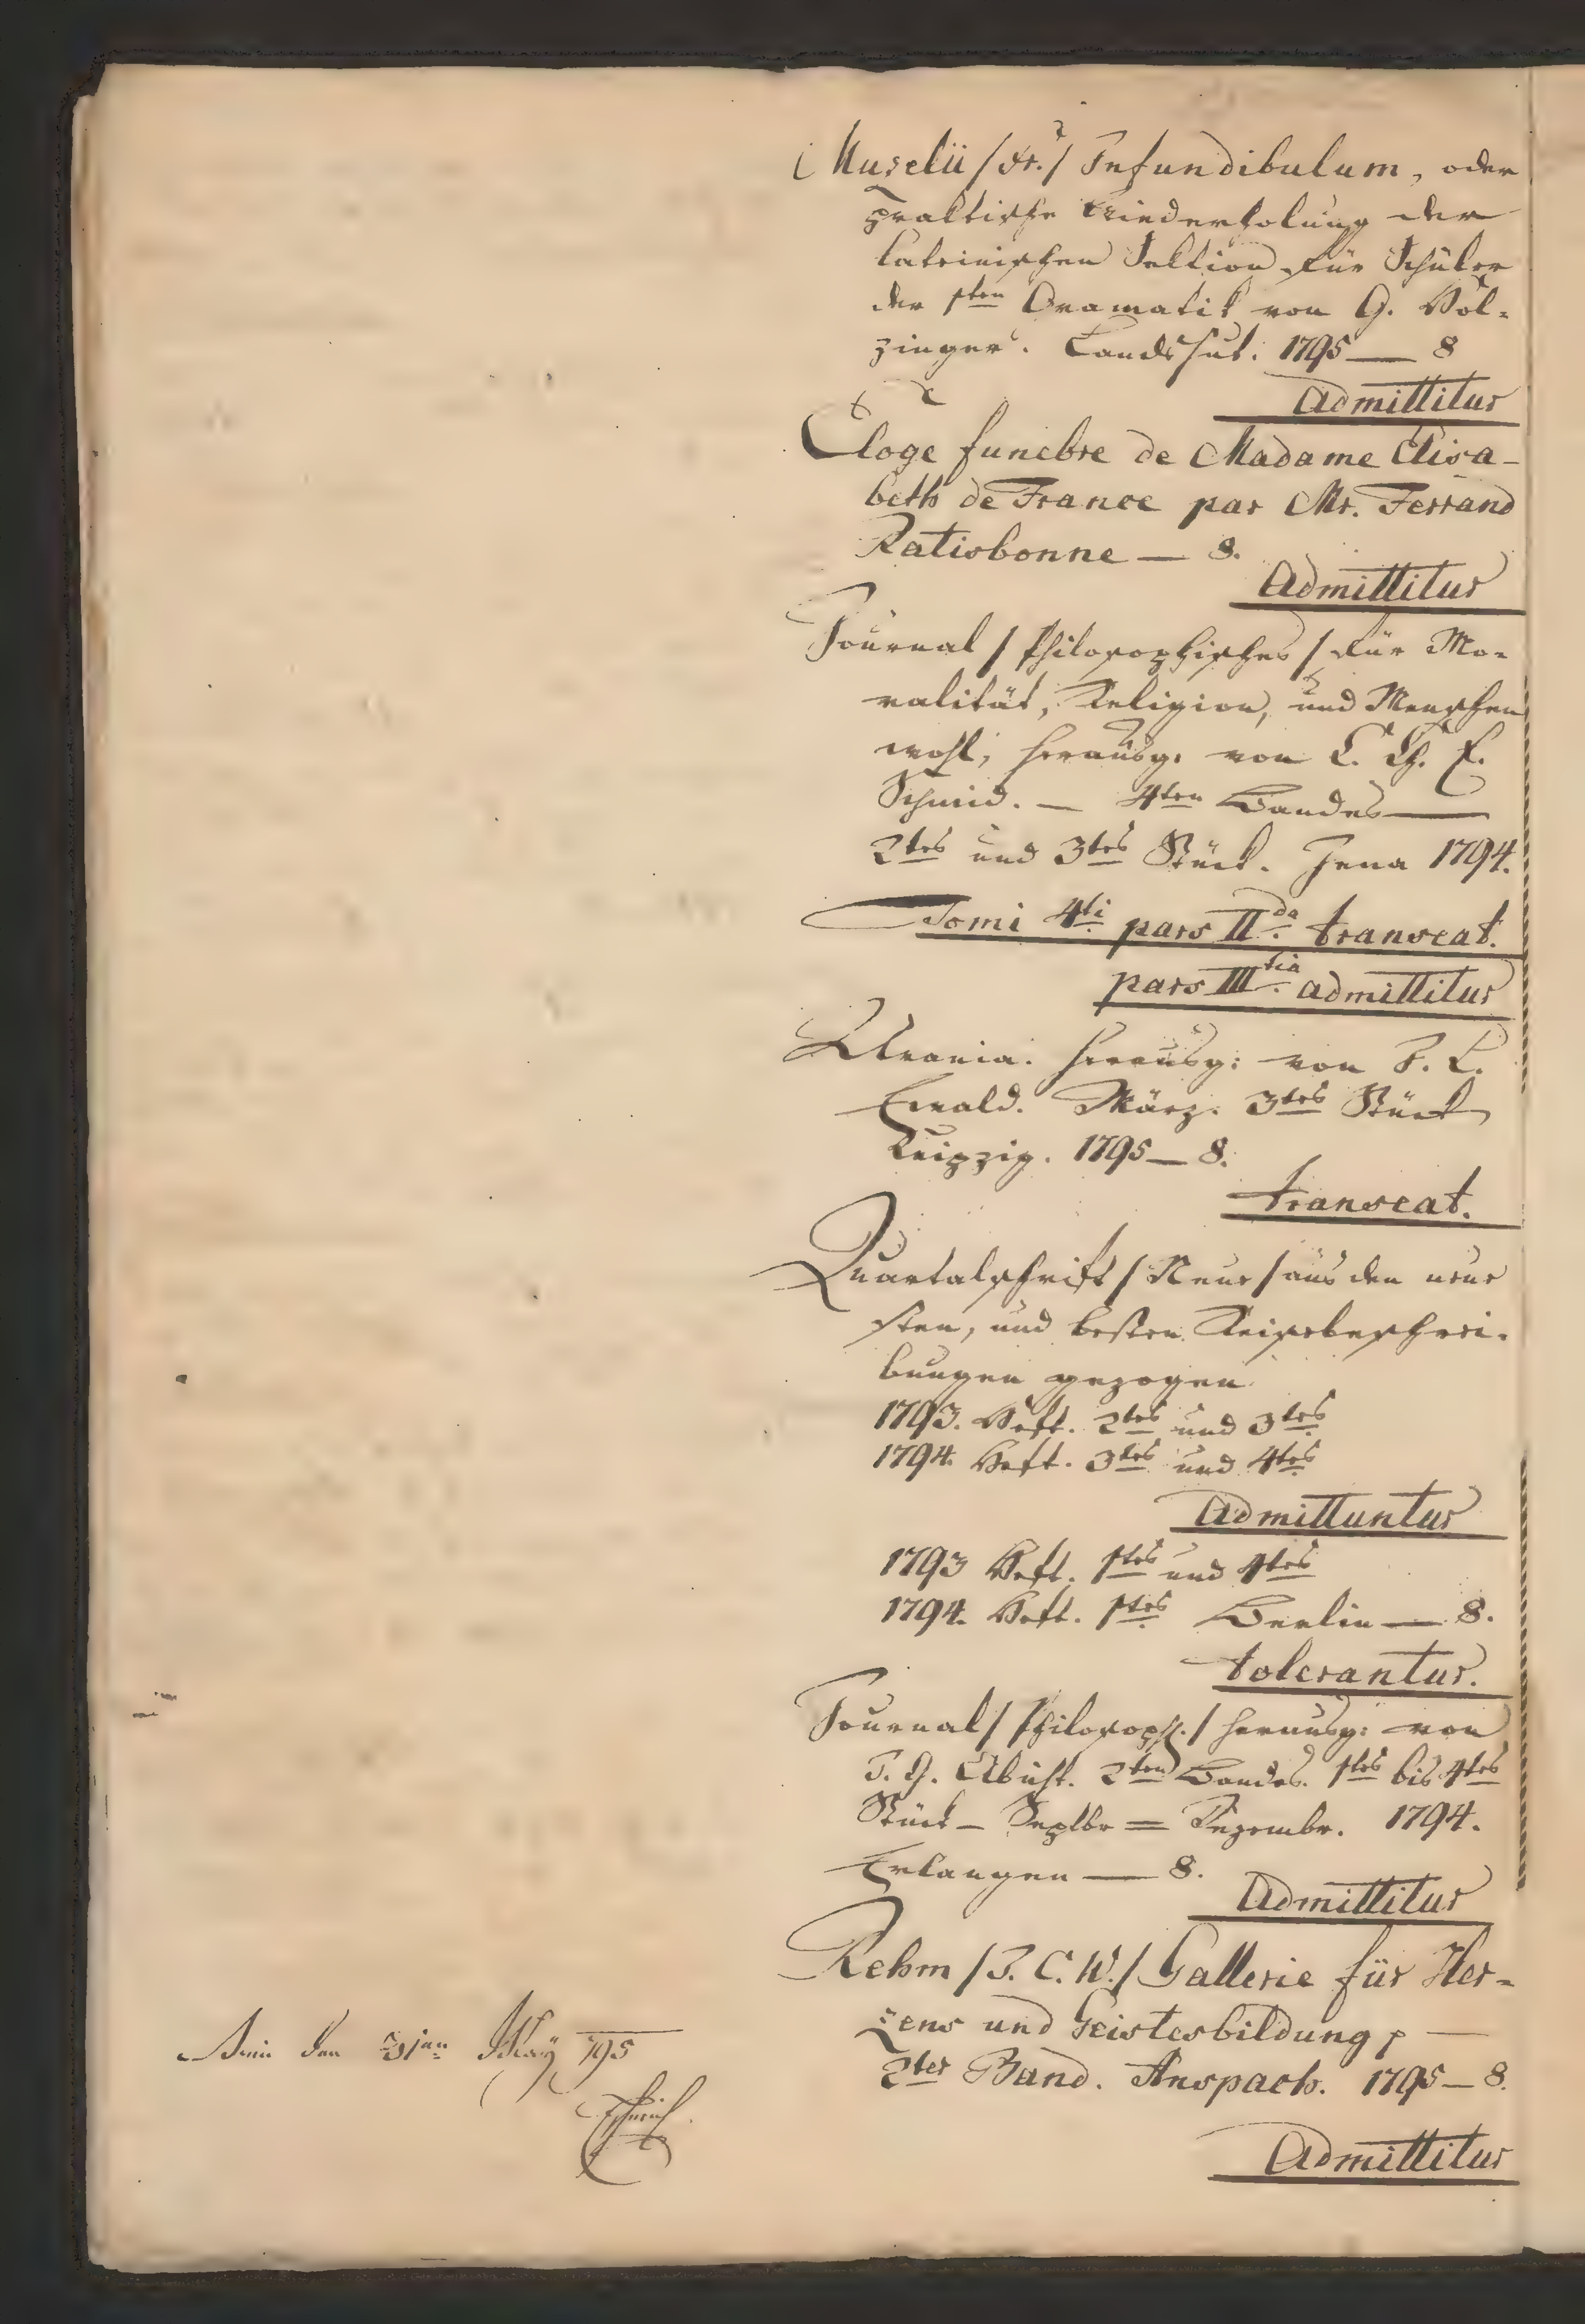 Muzelii /Fr./ Infundibulum, oder
praktische Wiederholung der
lateinischen Lektion für Schüler
der 1ten Gramatik von G. Hol-
zinger. Landshut. 1795 — 8
Admittitur
Eloge funebre de Madame Elisa-
beth de France par Mr. Ferrand
Ratisbonne — 8.
Admittitur
Journal / Philosophisches / für Mo-
ralität, Religion, und Menschen
wohl, herausg. von C. Ch. E.
Schmid. — 4ten Bandes —
2tes und 3tes Stück. Jena 1794.
Tomi 4ti pars IIda transeat.
pars IIItia admittitur
Urania. herausg: von J. L.
Ewald. März. 3tes Stück
Leipzig. 1795 — 8.
transeat.
Quartalschrift / Neue / aus den neue
sten, und besten Reisebeschrei-
bungen gezogen
1793. Heft. 2tes und 3tes
1794. Heft. 3tes und 4tes
Admittuntur
1793 Heft. 1tes und 4tes
1794. Heft. 1tes Berlin — 8.
tolerantur.
Journal / Philosoph. / herausg: von
J. H. Abicht. 2ten Bandes. 1tes bis 4tes
Stück — Septbr = Dezembr. 1794.
Erlangen — 8.
Admittitur
Rehm /J. C. W./ Gallerie für Her-
zens und Geistesbildung p —
2ter Band. Anspach. 1795 — 8.
Admittitur
den 31ten May 795